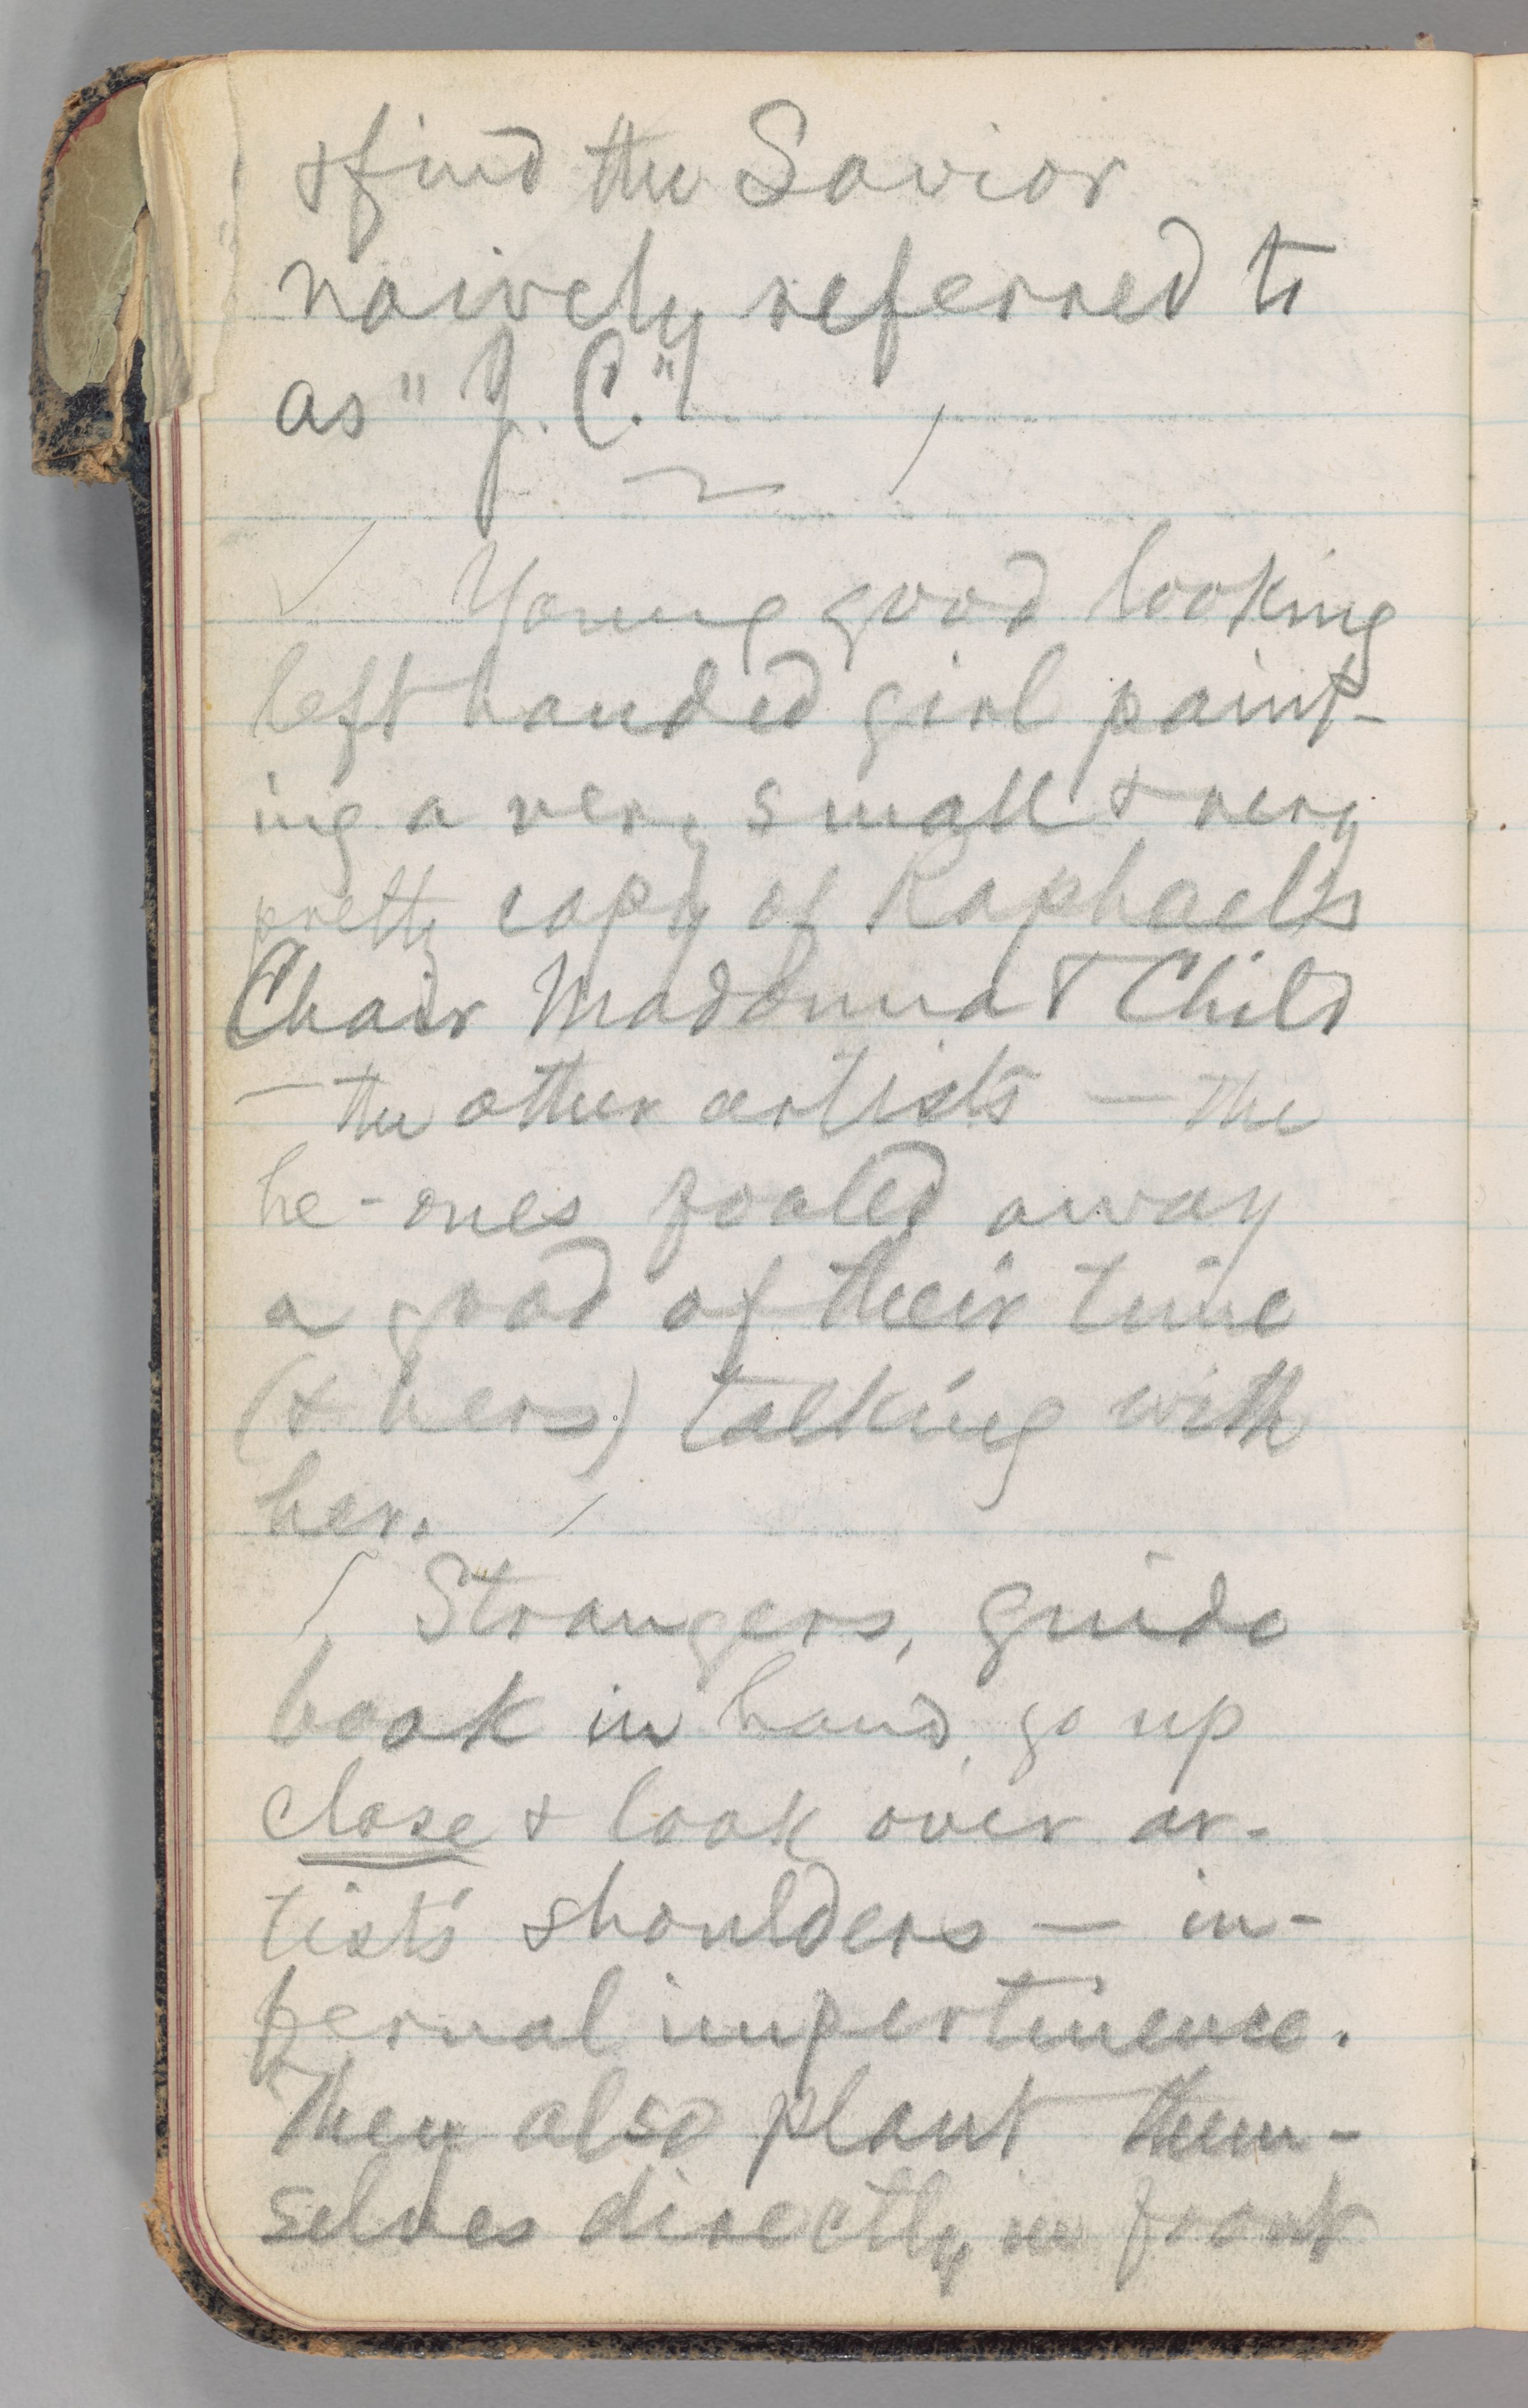 & find the Savior
naively referred to
as "J. C."
Young good looking
left handed girl paint-
ing a very small & very
pretty copy of Raphael's
Chair Madonna & Child
— the other artists — the
he-ones fooled away
a good of their time
(& hers) talking with
her.
Strangers, guide
book in hand, go up
close & look over ar-
tist's shoulders — in-
fernal impertinence.
They also plant them-
selves directly in front